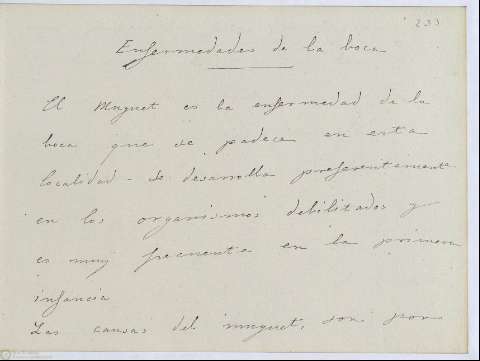 233
Enfermedades de la boca
El Muguet es la enfermedad de la
boca que se padece en esta
localidad - se desarrolla preferentemente
en los organismos debilitados y
es muy frecuente en la primera
infancia
Las causas del muguet, son por